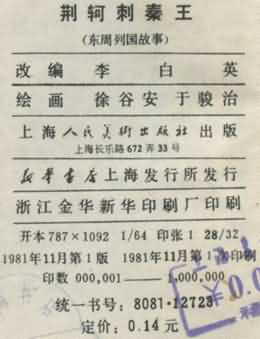 荆轲刺秦王
(东周列国故事)
改编 李白英
绘画 徐谷安 于骏治
上海人民美術出版社 出版
上海长乐路672弄33号
新华书店上海发行所发行
浙江金华新华印刷厂印刷
开本787×1092 1/64 印张1 28/32
1981年11月第1版 1981年11月第1次印刷
印数 000,001—1,000,000
统一书号: 8081·12723
定价: 0.14元
¥0.0